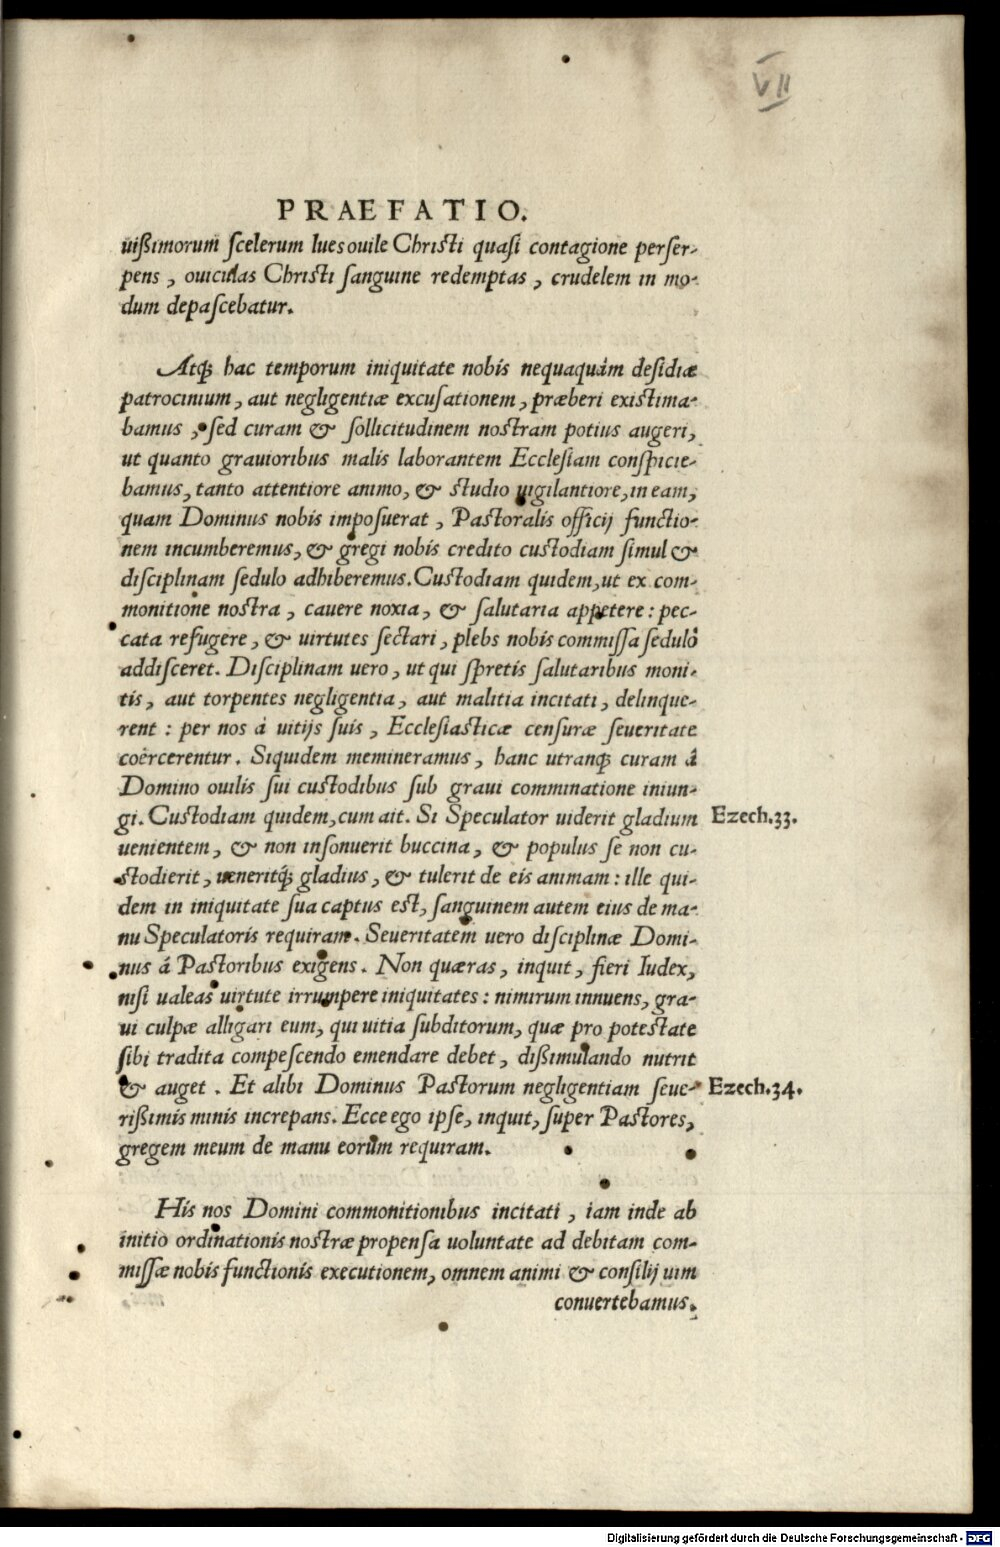 VII
PRAEFATIO.
uißimorum scelerum lues ouile Christi quasi contagione perser-
pens, ouiculas Christi sanguine redemptas, crudelem in mo-
dum depascebatur.
Atq́; hac temporum iniquitate nobis nequaquàm desidiæ
patrocinium, aut negligentiæ excusationem, præberi existima-
bamus, sed curam & sollicitudinem nostram potius augeri,
ut quanto grauioribus malis laborantem Ecclesiam conspicie-
bamus, tanto attentiore animo, & studio uigilantiore, in eam,
quam Dominus nobis imposuerat, Pastoralis officij functio-
nem incumberemus, & gregi nobis credito custodiam simul &
disciplinam sedulo adhiberemus. Custodiam quidem, ut ex com-
monitione nostra, cauere noxia, & salutaria appetere: pec-
cata refugere, & uirtutes sectari, plebs nobis commissa sedulò
addisceret. Disciplinam uero, ut qui spretis salutaribus moni-
tis, aut torpentes negligentia, aut malitia incitati, delinque-
rent: per nos á uitijs suis, Ecclesiasticæ censuræ seueritate
coërcerentur. Siquidem memineramus, hanc utranq; curam á
Domino ouilis sui custodibus sub graui comminatione iniun-
gi. Custodiam quidem, cum ait. Si Speculator uiderit gladium Ezech.33.
uenientem, & non insonuerit buccina, & populus se non cu-
stodierit, ueneritq́; gladius, & tulerit de eis animam: ille qui-
dem in iniquitate sua captus est, sanguinem autem eius de ma-
nu Speculatoris requiram. Seueritatem uero disciplinæ Domi-
nus á Pastoribus exigens. Non quæras, inquit, fieri Iudex,
nisi ualeas uirtute irrumpere iniquitates: nimirum innuens, gra-
ui culpæ alligari eum, qui uitia subditorum, quæ pro potestate
sibi tradita compescendo emendare debet, dißimulando nutrit
& auget. Et alibi Dominus Pastorum negligentiam seue- Ezech.34.
rißimis minis increpans. Ecce ego ipse, inquit, super Pastores,
gregem meum de manu eorum requiram.
His nos Domini commonitionibus incitati, iam inde ab
initio ordinationis nostræ propensa uoluntate ad debitam com-
missæ nobis functionis executionem, omnem animi & consilij uim
conuertebamus.
Digitalisierung gefördert durch die Deutsche Forschungsgemeinschaft - DFG